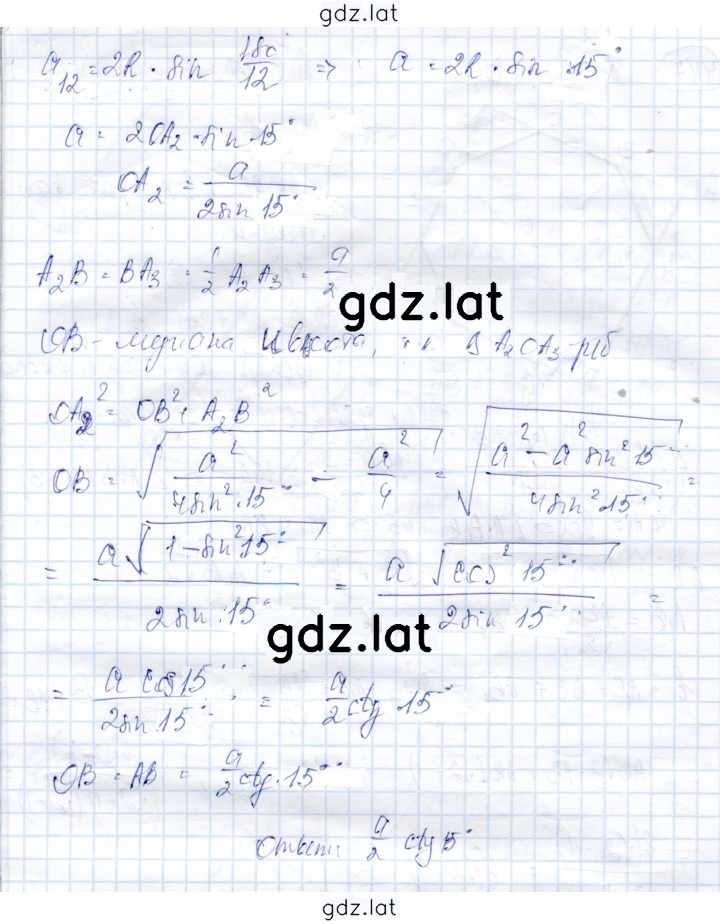 gdz.lat
a₁₂ = 2R · sin 180/12 => a = 2R · sin 15°
a = 2OA₂ · sin · 15°
OA₂ = a / 2sin 15°
A₂B = BA₃ = 1/2 A₂A₃ = a/2
gdz.lat
OB - медиана и высота, т.к. A₂OA₃ - р/б
OA₂² = OB² + A₂B²
OB = √(a² / 4sin² · 15° - a²/4) = √((a² - a² sin² 15°) / 4sin² 15°) =
= a√(1 - sin² 15°) / 2sin · 15° = a √(cos² 15°) / 2sin 15° =
gdz.lat
= a cos 15° / 2sin 15° = a/2 ctg 15°
OB = AB = a/2 ctg · 15°
Ответ: a/2 ctg 15°
gdz.lat